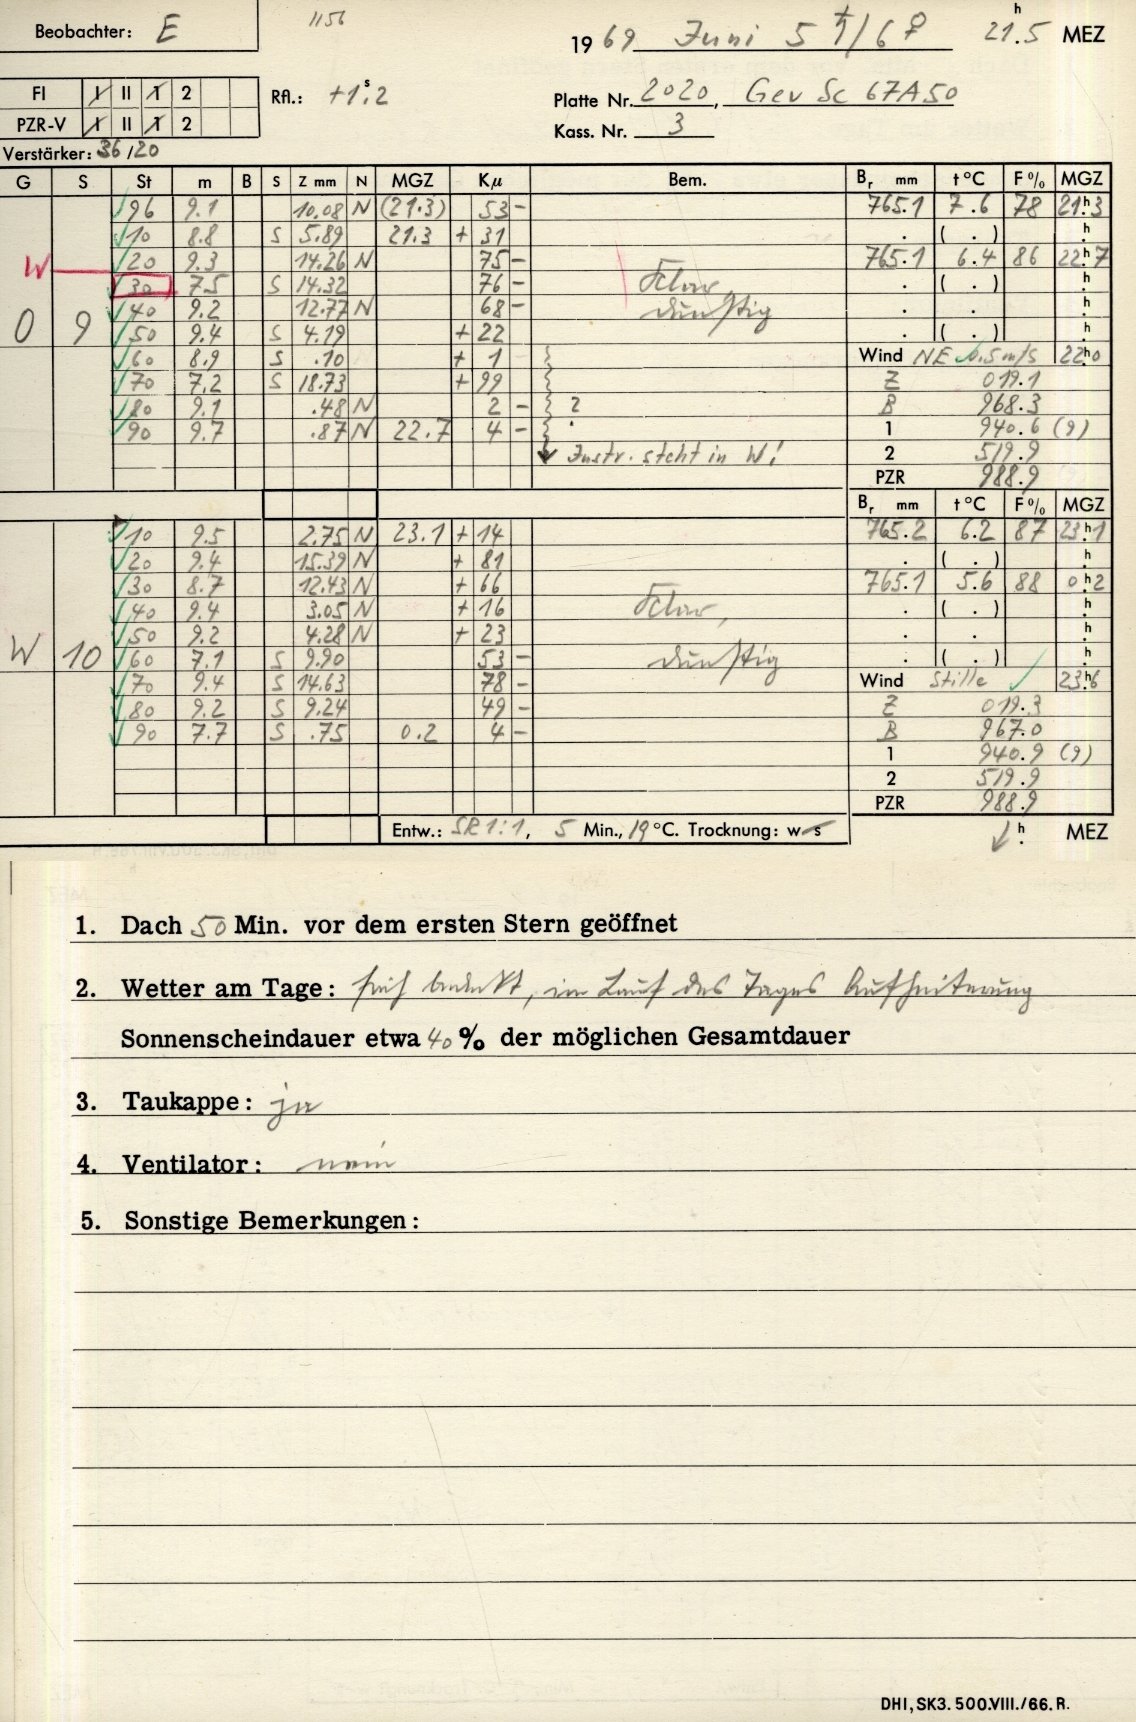 Beobachter: E
1156
1969 Juni 5 ♄/6 ♀ 21.5 h MEZ
FI I II 1 2
Rfl.: +1.2 s
Platte Nr. 2020, Gev Sc 67A50
PZR-V I II 1 2
Kass. Nr. 3
Verstärker: 36/20
G S St m B S Z mm N MGZ Kμ Bem. Br mm t °C F % MGZ
96 9.1 10.08 N (21.3) 53 - 765.1 7.6 78 21h3
10 8.8 S 5.89 21.3 + 31 . ( . ) h
20 9.3 14.26 N 75 - 765.1 6.4 86 22h7
W 30 7.5 S 14.32 76 - klar, . ( . ) h
40 9.2 12.77 N 68 - dunstig . . h
O 9 50 9.4 S 4.19 + 22 . ( . ) h
60 8.9 S .10 + 1 Wind NE 0.5 m/s 22h0
70 7.2 S 18.73 + 99 Z 019.1
80 9.1 .48 N 2 - ? B 968.3
90 9.7 .87 N 22.7 4 - 1 940.6 (9)
Instr. steht in W! 2 519.9
PZR 988.9
Br mm t °C F % MGZ
10 9.5 2.75 N 23.1 + 14 765.2 6.2 87 23h1
20 9.4 15.39 N + 81 . ( . ) h
30 8.7 12.43 N + 66 765.1 5.6 88 0h2
40 9.4 3.05 N + 16 klar, . ( . ) h
50 9.2 4.28 N + 23 . . h
W 10 60 7.1 S 9.90 53 - dunstig . ( . ) h
70 9.4 S 14.63 78 - Wind Stille 23h6
80 9.2 S 9.24 49 - Z 019.3
90 7.7 S .75 0.2 4 - B 967.0
1 940.9 (9)
2 519.9
PZR 988.9
Entw.: SR 1:1, 5 Min., 19 °C. Trocknung: w s h MEZ
1. Dach 50 Min. vor dem ersten Stern geöffnet
2. Wetter am Tage: früh bedeckt, im Lauf des Tages Aufheiterung
Sonnenscheindauer etwa 40 % der möglichen Gesamtdauer
3. Taukappe: ja
4. Ventilator: nein
5. Sonstige Bemerkungen:
DHI, SK3. 500.VIII./66. R.